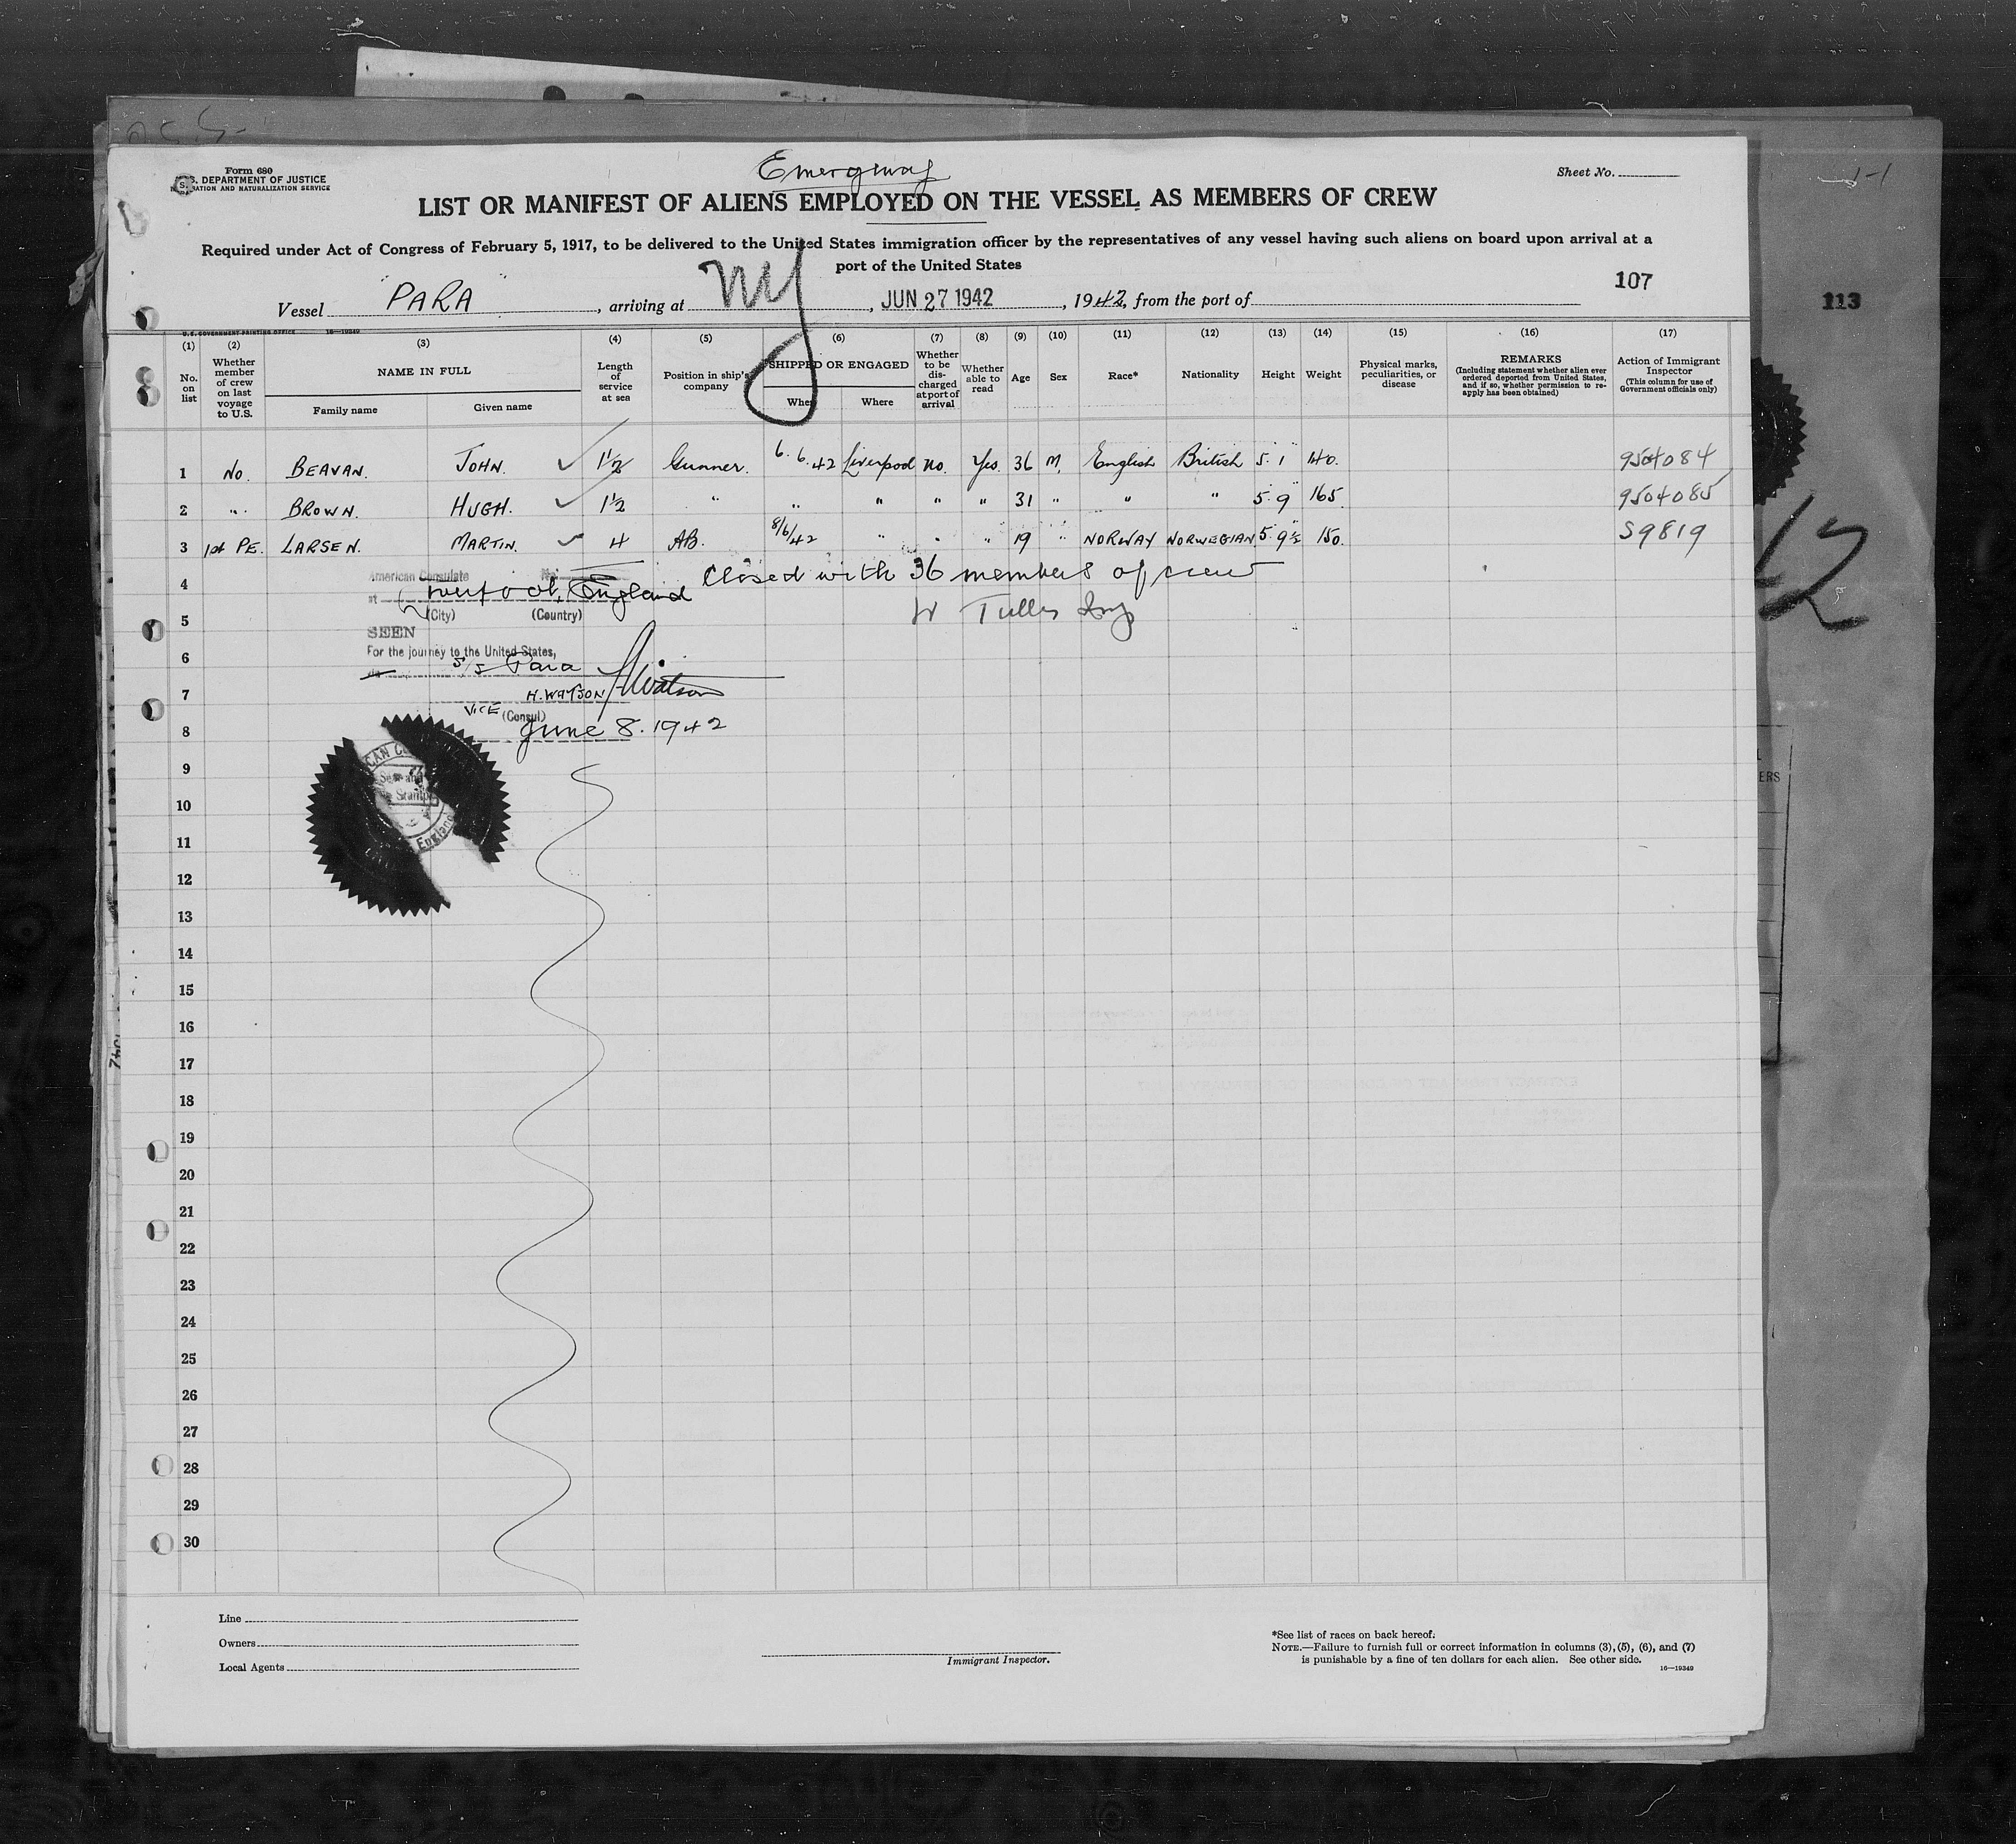 Form 680
U.S. DEPARTMENT OF JUSTICE
IMMIGRATION AND NATURALIZATION SERVICE
Emergency
Sheet No.
LIST OR MANIFEST OF ALIENS EMPLOYED ON THE VESSEL AS MEMBERS OF CREW
Required under Act of Congress of February 5, 1917, to be delivered to the United States immigration officer by the representatives of any vessel having such aliens on board upon arrival at a
port of the United States
107
113
Vessel "PARA", arriving at NY, JUN 27 1942, 1942, from the port of
U.S. GOVERNMENT PRINTING OFFICE 16—19349
(1) (2) (3) (4) (5) (6) (7) (8) (9) (10) (11) (12) (13) (14) (15) (16) (17)
No. on list
Whether member of crew on last voyage to U.S.
NAME IN FULL
Family name
Given name
Length of service at sea
Position in ship's company
SHIPPED OR ENGAGED
When
Where
Whether to be discharged at port of arrival
Whether able to read
Age
Sex
Race*
Nationality
Height
Weight
Physical marks, peculiarities, or disease
REMARKS
(Including statement whether alien ever ordered deported from United States, and if so, whether permission to reapply has been obtained)
Action of Immigrant Inspector
(This column for use of Government officials only)
1 No. BEAVAN. JOHN. ✓ 1½ Gunner. 6.6.42 Liverpool no. Yes. 36 M. English British 5.1 140. 9504084
2 " BROWN. HUGH. ✓ 1½ " " " " " 31 " " " 5.9 165. 9504085
3 1st PE. LARSEN. MARTIN. ✓ 4 AB. 8/6/42 " " " 19 " NORWAY NORWEGIAN 5.9½ 150. 59819
4 Closed with 36 members of crew
American Consulate No.
at Liverpool, England
(City) (Country)
5
SEEN
For the journey to the United States,
6
s/s Para
7
H. WATSON H Watson
VICE (Consul)
8
June 8. 1942
9
10
11
12
13
14
15
16
17
18
19
20
21
22
23
24
25
26
27
28
29
30
Line
Owners
Local Agents
Immigrant Inspector.
*See list of races on back hereof.
NOTE.—Failure to furnish full or correct information in columns (3), (5), (6), and (7)
is punishable by a fine of ten dollars for each alien. See other side.
16—19349